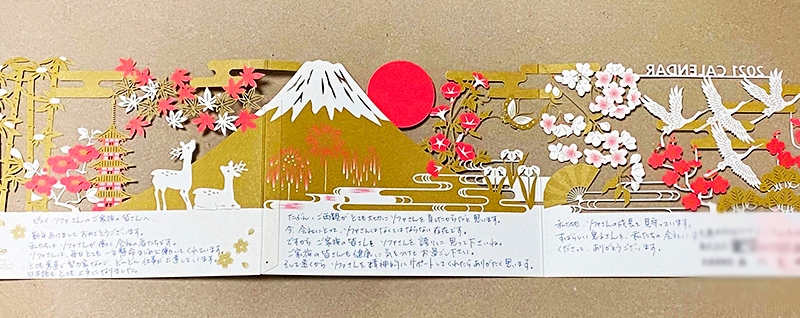 2021 CALENDAR
ビル・ソファさんのご家族の皆さんへ
新年あけましておめでとうございます。
私たちは ソファが働く 会社の者たちです。
ソファさんは、毎日とても一生懸命まじめに働いてくれています。
とても真面目な努力家なので、どんどん仕事が上達しています。
日本語もとても上手になりました。
たぶん、ご両親がとても大切に ソファさんを 育てたからだと思います。
今、会社にとって、ソファさんはなくてはならない存在です。
ですから ご家族の皆さんも ソファさんを 誇りに 思って下さいね。
ご家族の皆さんも健康に 気をつけて お過ごし下さい。
そして遠くから ソファさんを精神的に サポートしてくれたらありがたく思います。
私たちは、ソファさんの成長を 見守っています。
すばらしい 娘さんを、私たちの会社に
くださって、ありがとうございます。